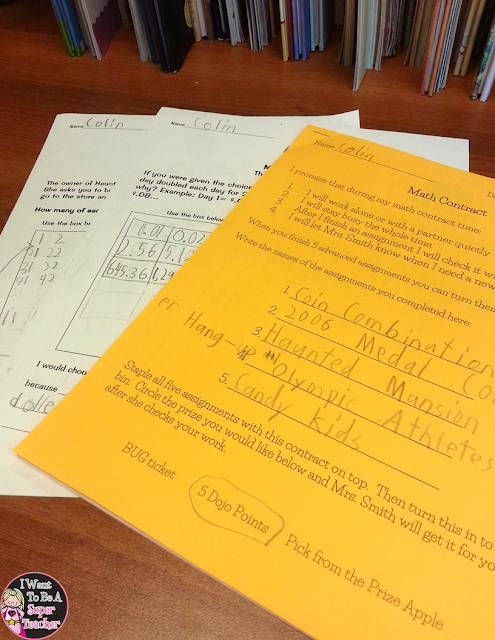 Name Colin
The owner of Haunt
She asks you to b
go to the store an
How many of eac
Use the box be
31 32
41 42
Name Colin
If you were given the choic
day doubled each day for 2
why? Example: Day 1= $.0
$.08...
Use the box below
0.01 0.02
.56 5.12
645.36 1,29
I would choo
because
dolle
Name Colin
Math Contract
I promise that during my math contract time:
1. I will work alone or with a partner quietly
2. I will stay busy the whole time.
3. After I finish an assignment I will check it w
4. I will let Mrs. Smith know when I need a new
When you finish 5 advanced assignments you can turn them
Write the names of the assignments you completed here:
1. Coin Combination
2. 2006 Medal Co
3. Haunted Mansion
er Hang-up
4. Olympic Athletes
5. Candy Kids
Staple all five assignments with this contract on top. Then turn this in to
bin. Circle the prize you would like below and Mrs. Smith will get it for yo
after she checks your work.
BUG ticket
5 Dojo Points
Pick from the Prize Apple
I Want
To Be A
Super
Teacher